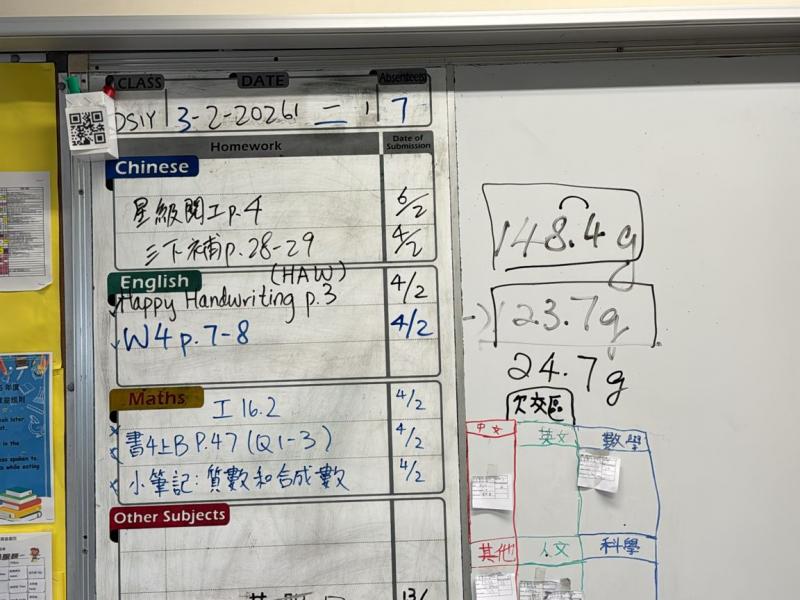 CLASS DATE Absentee(s)
3-2-2026 二 7
Homework Date of Submission
Chinese
星級關工p.4 6/2
三下補p.28-29 4/2
English
(HAW)
Happy Handwriting p.3 4/2
W4 p.7-8 4/2
Maths
工16.2 4/2
書4上B P.47 (Q1-3) 4/2
小筆記:質數和合成數 4/2
Other Subjects
148.4g
123.7g
24.7g
欠交區
中文 英文 數學
其他 人文 科學